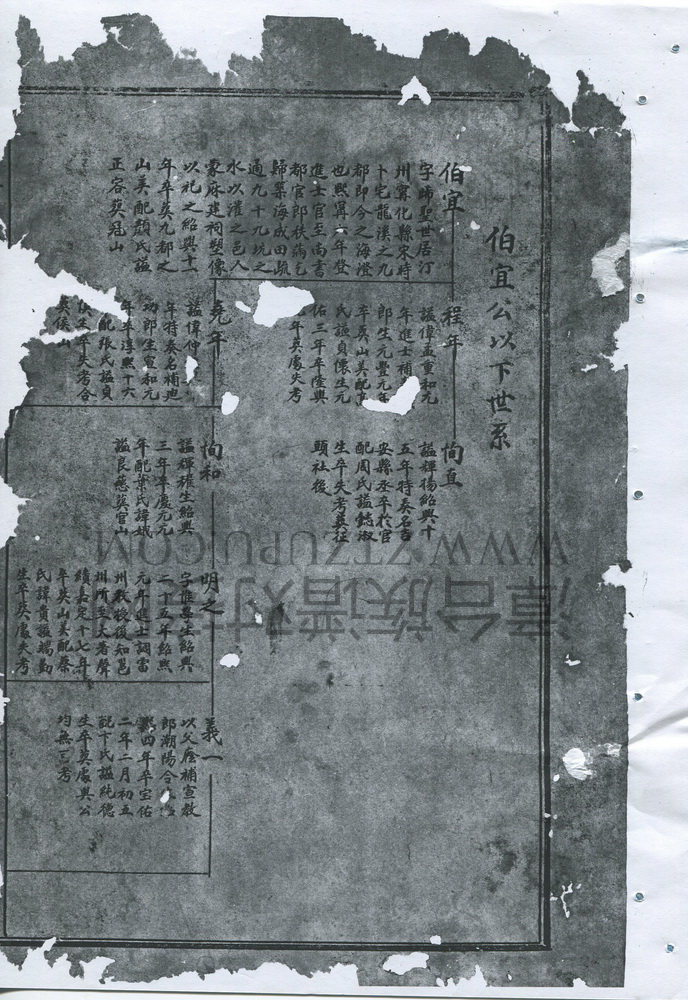 伯宜公以下世系
伯宜
字諦聖世居汀
州寧化縣宋時
卜宅龍溪之九
都即今之海澄
也熙寧六年登
進士官至尚書
都官郎秩滿乞
歸築海成田疏
通九十九坑之
水以灌之邑人
蒙庥建祠塑像
以祀之紹興十一
年卒葵九都之
山美配顏氏諡
正容葵冠山
程年
諡偉孟重和元
年進士補
郎生元豐元年
卒葵山美配
氏諡貞懷生元
佑三年卒隆興
年葵處失考
堯年
諡偉仲
年特奏名補迪
功郎生宣和元
年卒淳熙十六
配張氏諡貞
生卒失考合
葵後山
恂直
諡輝楊紹興十
五年特奏名吉
安縣丞卒於官
配周氏諡懿淑
生卒失考葵征
頭社後
恂和
諡輝權生紹興
三年卒慶元元
年配葉氏諱娥
諡良慈葵官山
明之
字惟粵生紹興
二十五年紹熙
元年進士調雷
州教授後知邕
州所至大著聲
績嘉定十七年
卒葵山美配蔡
氏諱貴諡端勤
生卒葵處失考
義一
以父蔭補宣教
郎潮陽令
四年卒宝佑
二年二月初五
配卞氏諡純德
生卒葵處與公
均無可考
WWW.ZTZUPU.COM
漳台族谱对